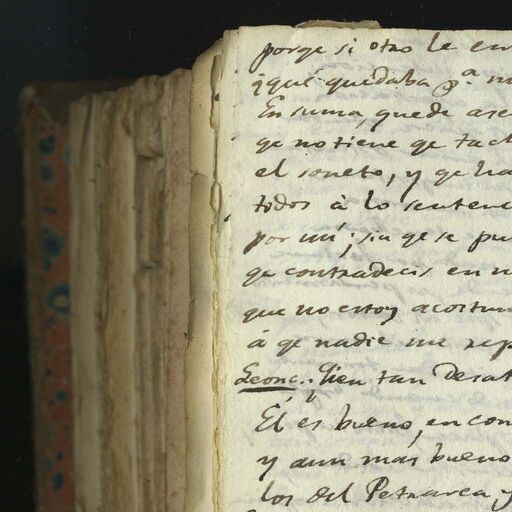 porqe si otro le en
¡qué quedaba pa. m
En suma, quede ase
qe no tiene qe tach
el soneto, y qe ha
todos à lo sentenc
por mí; sin qe se pu
qe contradecis en m
que no estoy acostum
á qe nadie me rep
Leonc.. tan Desat
Él es bueno, en con
y aun más bueno
los del Petrarca, y